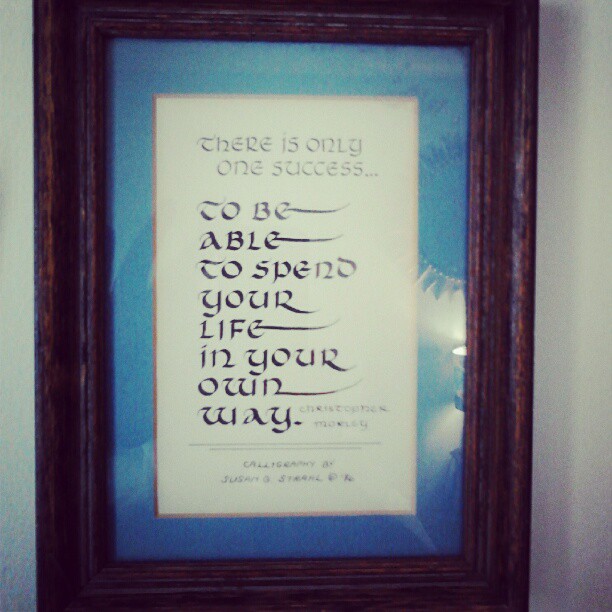 THERE IS ONLY
ONE SUCCESS...
TO BE
ABLE
TO SPEND
YOUR
LIFE
IN YOUR
OWN
WAY. CHRISTOPHER
MORLEY
CALLIGRAPHY BY
SUSAN